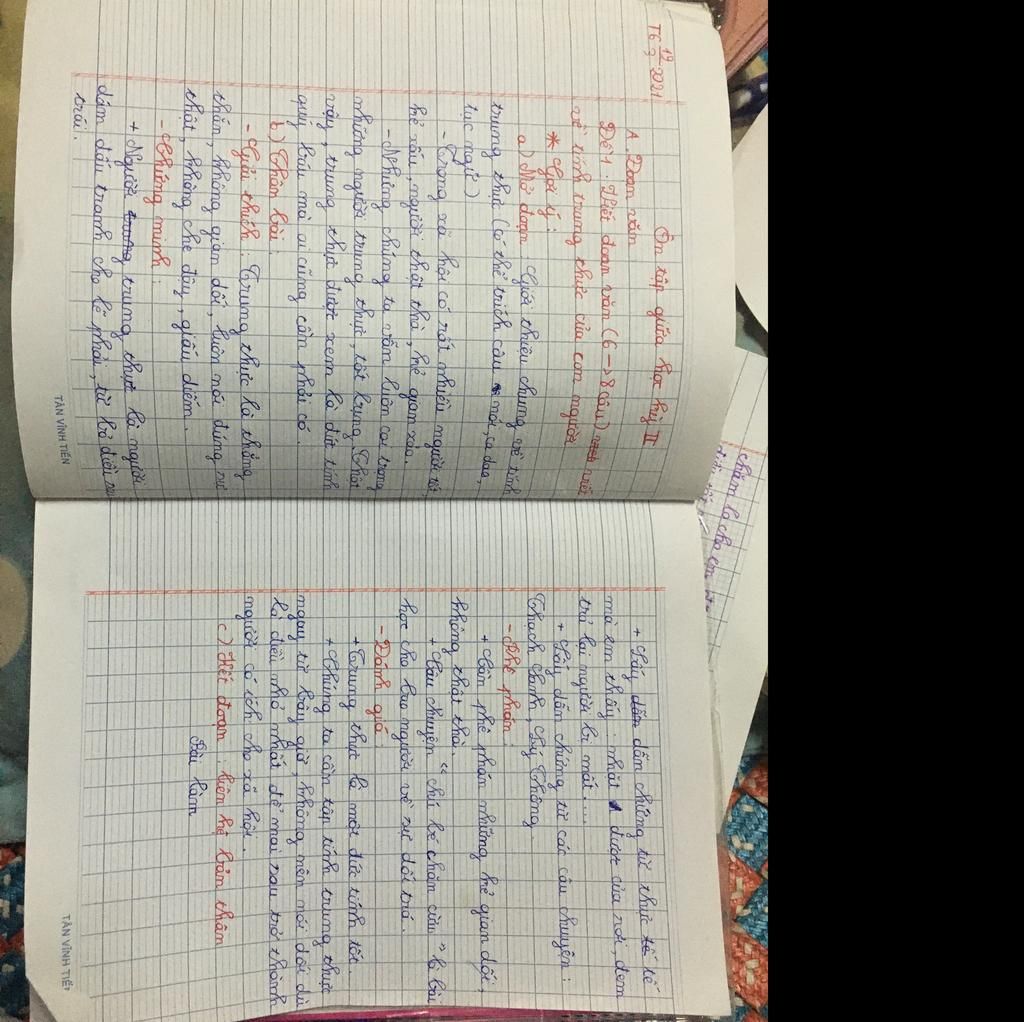 T6 12/3 2021
Ôn tập giữa học kỳ II
A. Đoạn văn
Đề 1: Viết đoạn văn (6 → 8 câu) viết
về tính trung thực của con người
* Gợi ý:
a) Mở đoạn: Giới thiệu chung về tính
trung thực (Có thể trích câu nói, ca dao,
tục ngữ)
- Trong xã hội có rất nhiều người tốt,
kẻ xấu, người thật thà, kẻ gian xảo.
- Nhưng chúng ta vẫn luôn coi trọng
những người trung thực, tốt bụng. Thật
vậy, trung thực được xem là đức tính
quý báu mà ai cũng cần phải có.
b) Thân bài:
- Giải thích: Trung thực là thẳng
thắn, không gian dối, luôn nói đúng sự
thật, không che đậy, giấu diếm.
- Chứng minh:
+ Người trung thực là người
dám đấu tranh cho lẽ phải, từ bỏ điều sai
trái.
TÂN VĨNH TIẾN
+ Lấy dẫn chứng từ thực tế
mà em thấy: nhặt được của rơi, đem
trả lại người bị mất....
+ Lấy dẫn chứng từ các câu chuyện:
Thạch Sanh, Lý Thông.
- Phê phán:
+ Cần phê phán những kẻ gian dối,
không thật thà.
+ Câu chuyện "chú bé chăn cừu" là bài
học cho bao người về sự dối trá.
- Đánh giá:
+ Trung thực là một đức tính tốt.
+ Chúng ta cần tập tính trung thực
ngay từ bây giờ, không nên nói dối dù
là điều nhỏ nhất để mai sau trở thành
người có ích cho xã hội.
c) Kết đoạn: liên hệ bản thân
Bài làm
TÂN VĨNH TIẾN